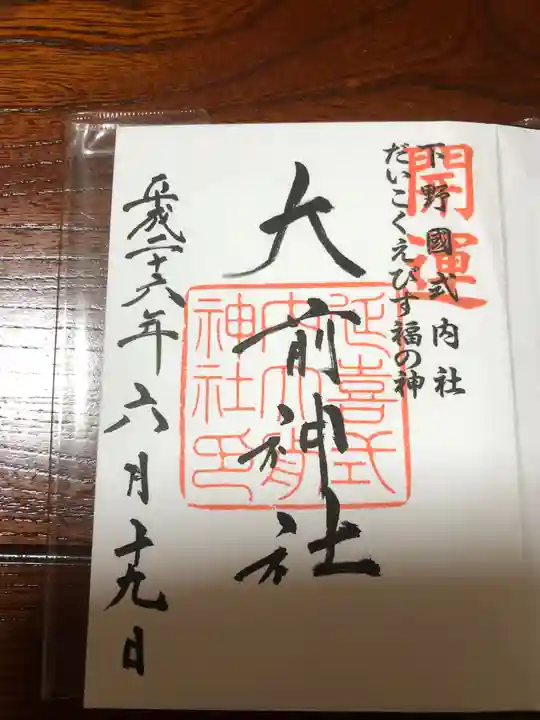 開運
下野國式内社
だいこくえびす福の神
大前神社
延喜式
内大前
神社印
平成二十六年六月十九日